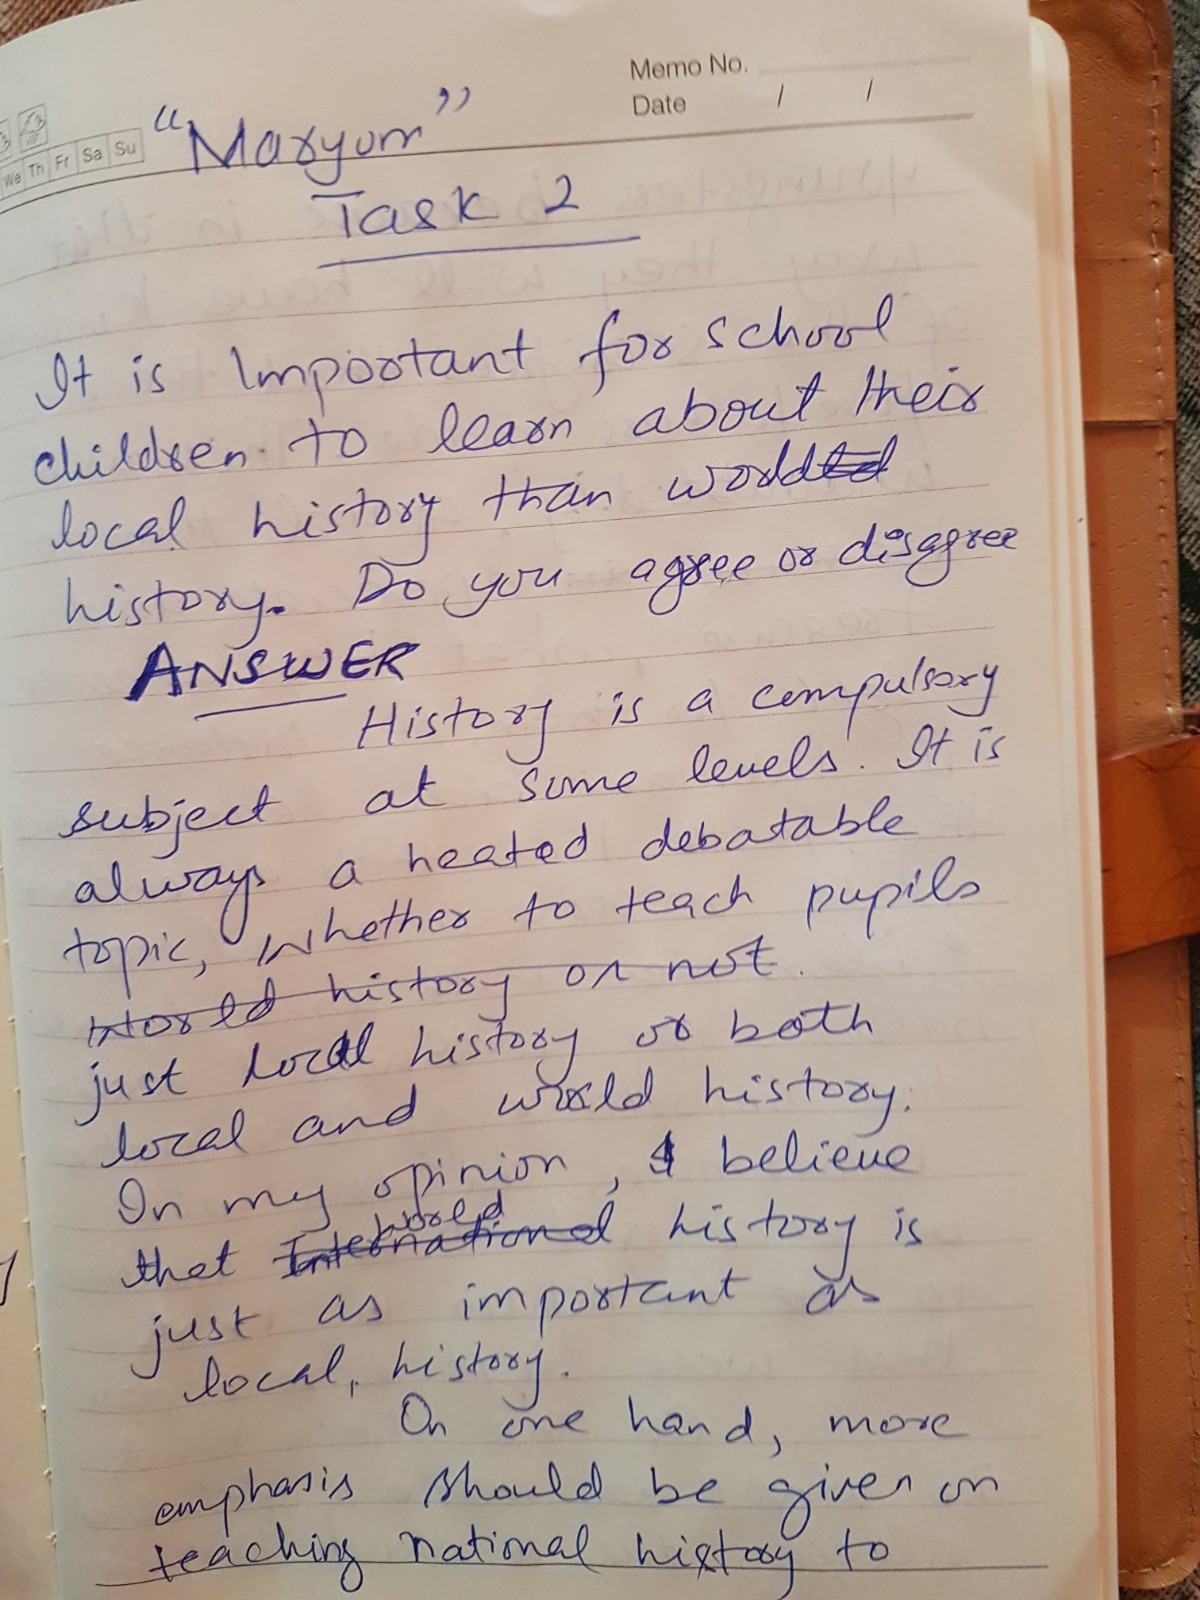 Memo No.
Date / /
We Th Fr Sa Su
"Maryum"
Task 2
It is Important for school
children to learn about their
local history than world
history. Do you agree or disagree
ANSWER
History is a compulsory
subject at some levels. It is
always a heated debatable
topic, whether to teach pupils
world history or not.
just local history or both
local and world history.
In my opinion, I believe
that International world history is
just as important as
local, history.
On one hand, more
emphasis should be given on
teaching national history to